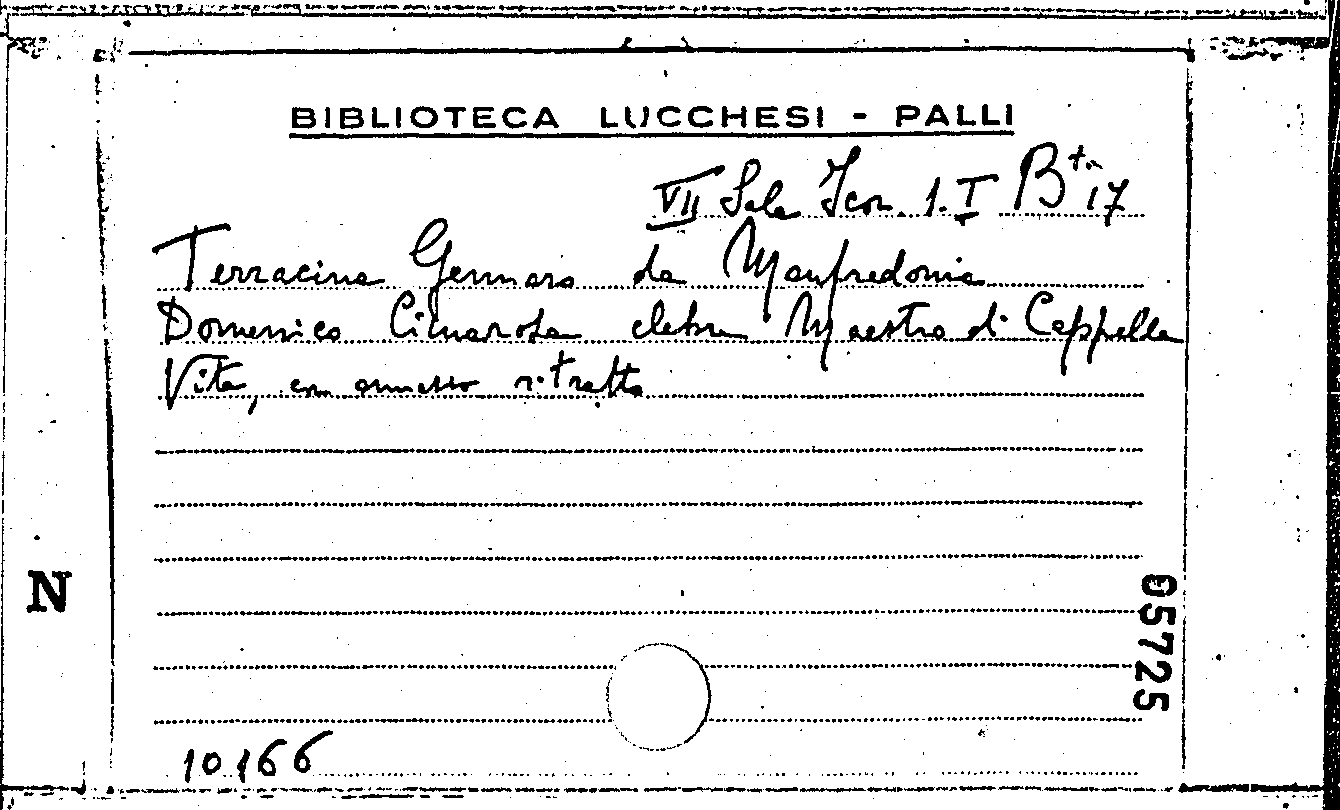 BIBLIOTECA LUCCHESI - PALLI
VII Sala Scon. 1. I Bta 17
Terracina Gennaro da Manfredonia
Domenico Cimarosa celebre Maestro di Cappella
Vita, con annesso ritratto
N
05725
10166